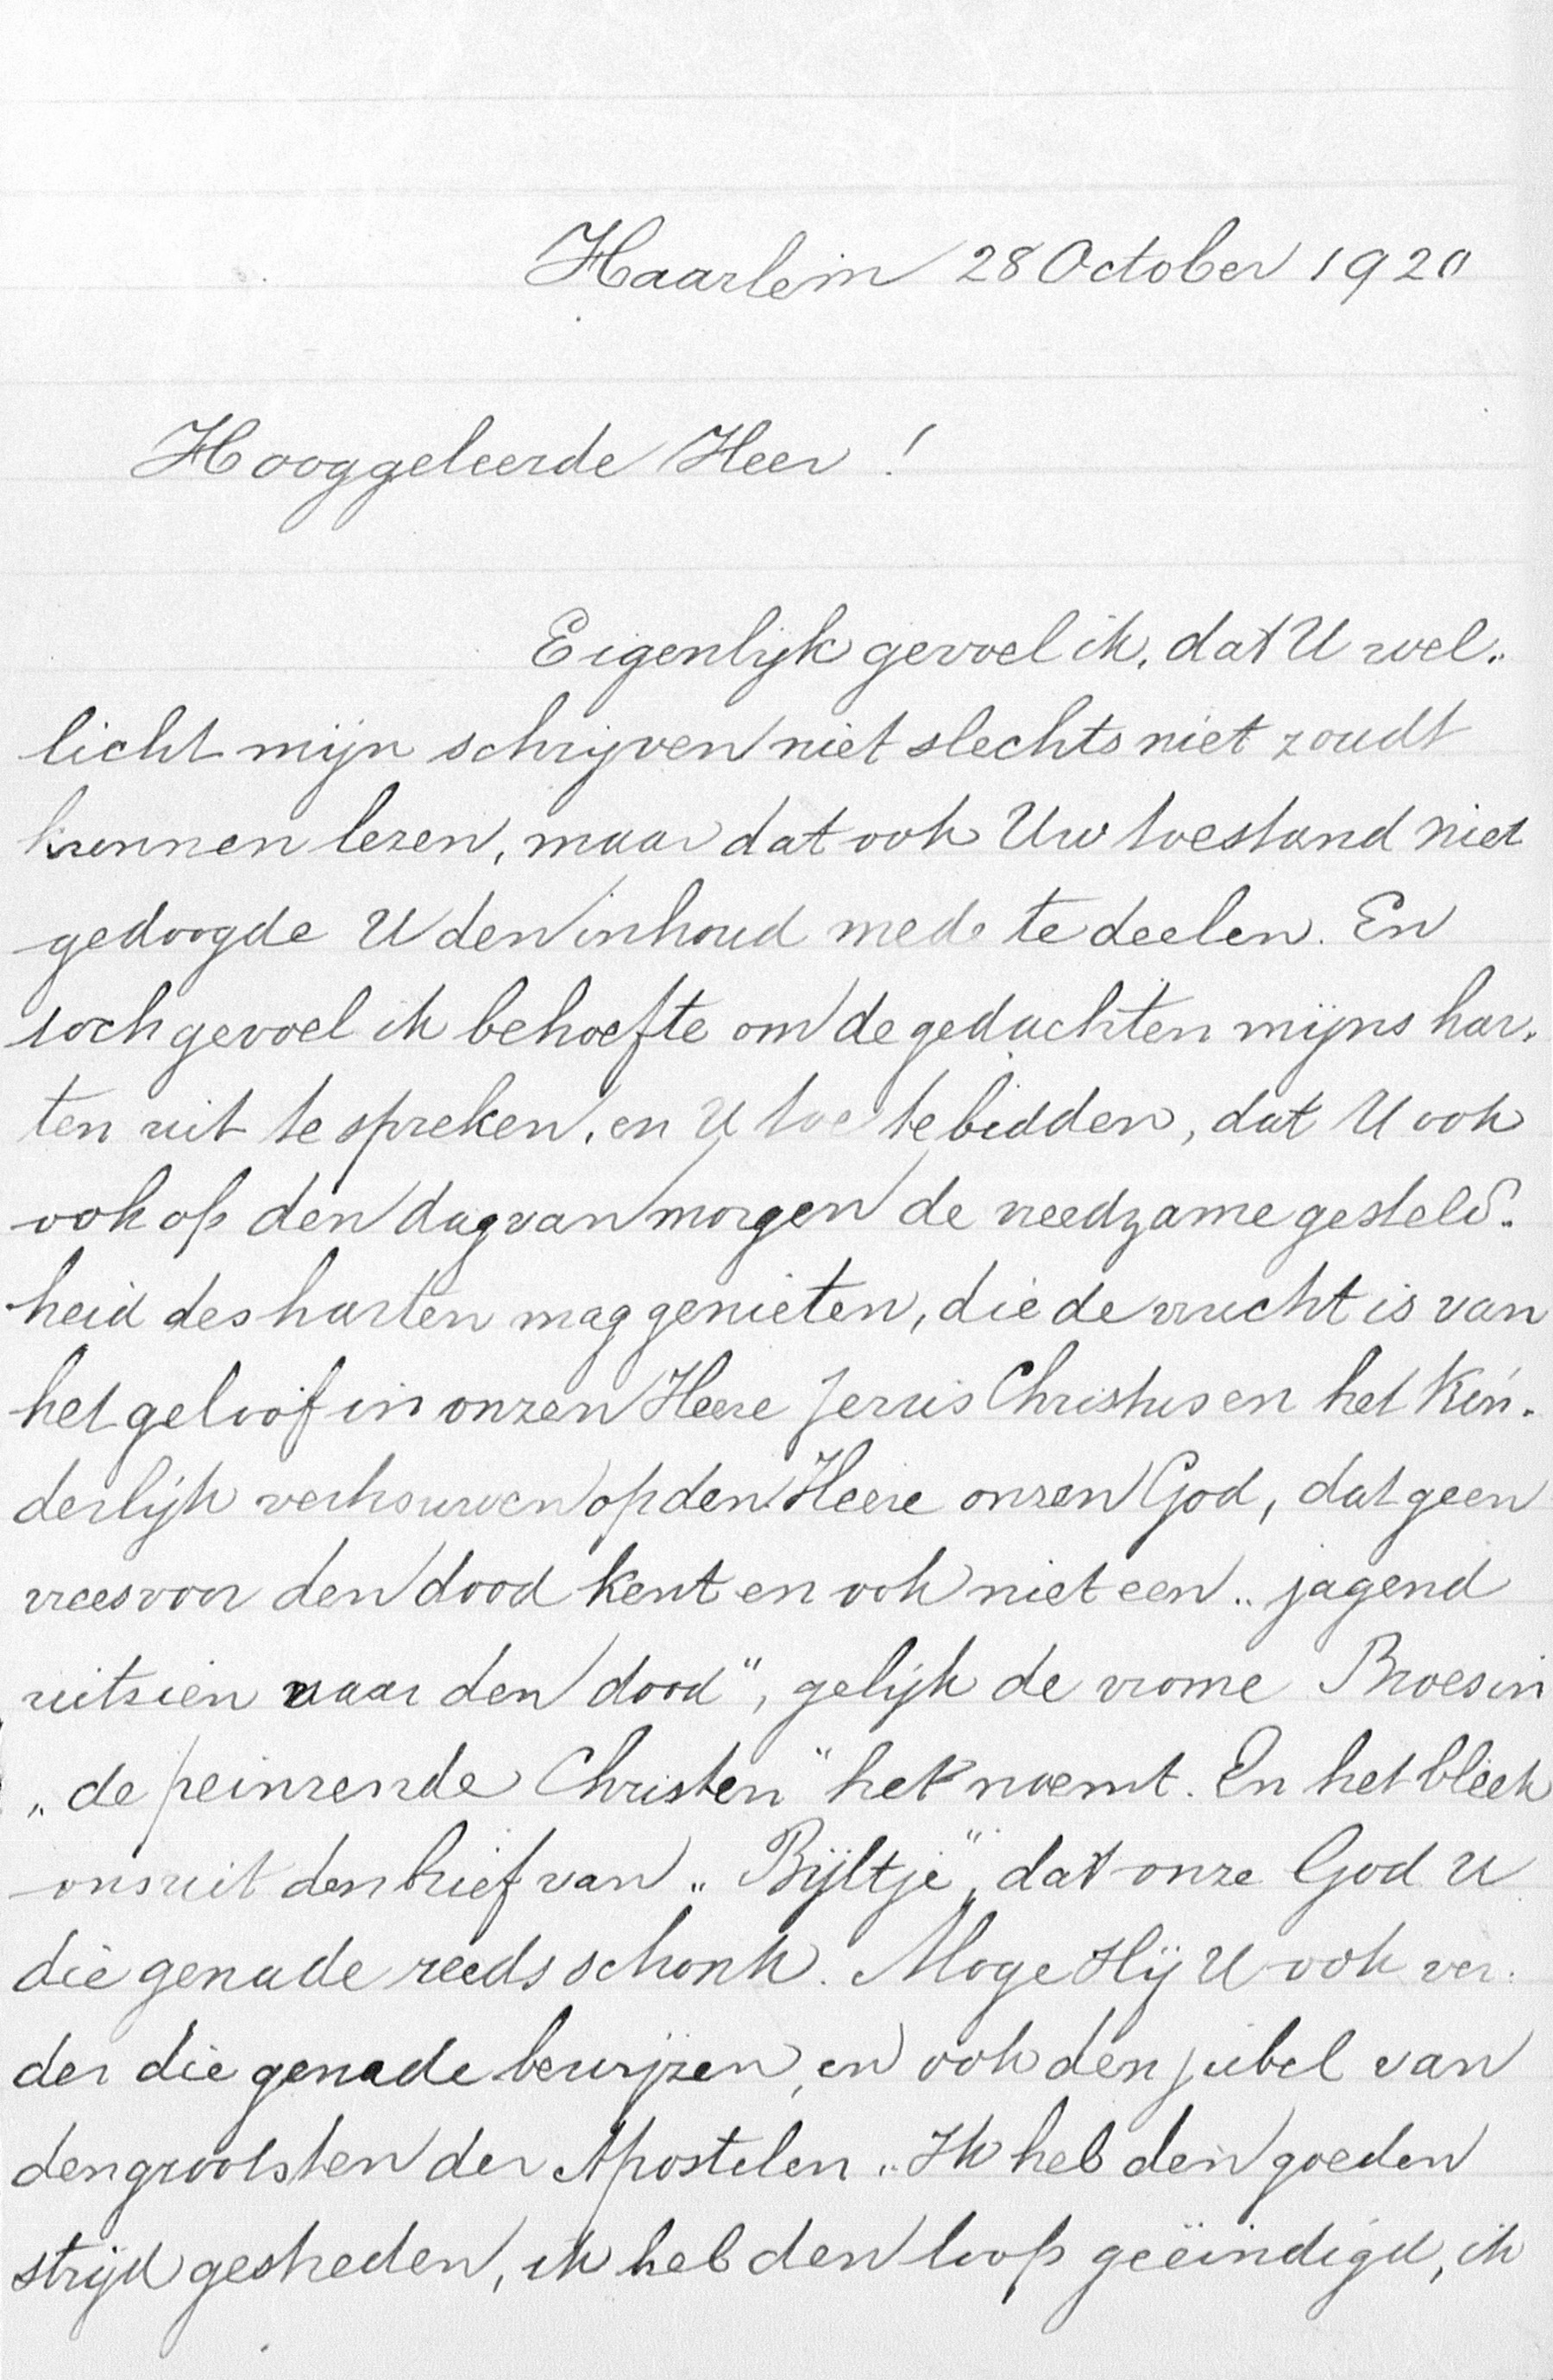 Haarlem 28 October 1920
Hooggeleerde Heer!
Eigenlijk gevoel ik, dat U wel-
licht mijn schrijven niet slechts niet zoudt
kunnen lezen, maar dat ook Uw toestand niet
gedoogde U den inhoud mede te deelen. En
toch gevoel ik behoefte om de gedachten mijns har-
ten uit te spreken, en U toe te bidden, dat U ook
ook op den dag van morgen de vreedzame gesteld-
heid des harten mag genieten, die de vrucht is van
het geloof in onzen Heere Jezus Christus en het kin-
derlijk vertrouwen op den Heere onzen God, dat geen
vrees voor den dood kent en ook niet een „jagend
uitzien naar den dood", gelijk de vrome Broes in
„de peinzende Christen" het noemt. En het bleek
ons uit den brief van „Bijltje", dat onze God U
die genade reeds schonk. Moge Hij U ook ver-
der die genade bewijzen, en ook den jubel van
den grootsten der Apostelen „Ik heb den goeden
strijd gestreden, ik heb den loop geëindigd, ik